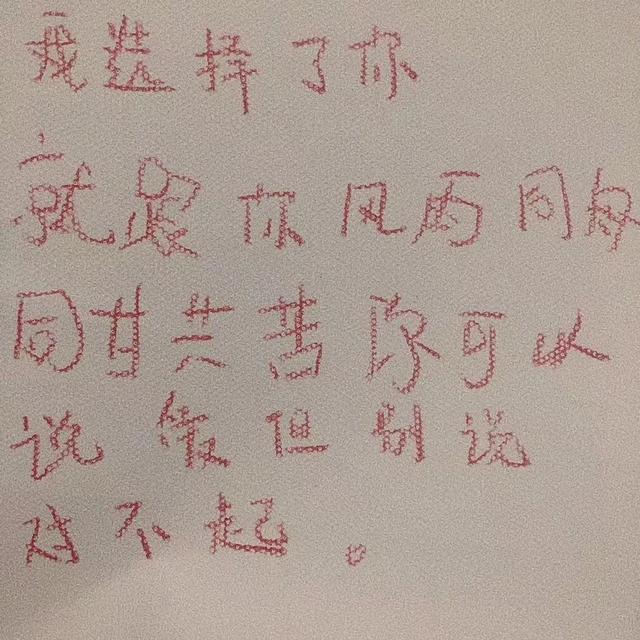 我选择了你
就跟你风雨同舟
同甘共苦你可以
说爱但别说
对不起。